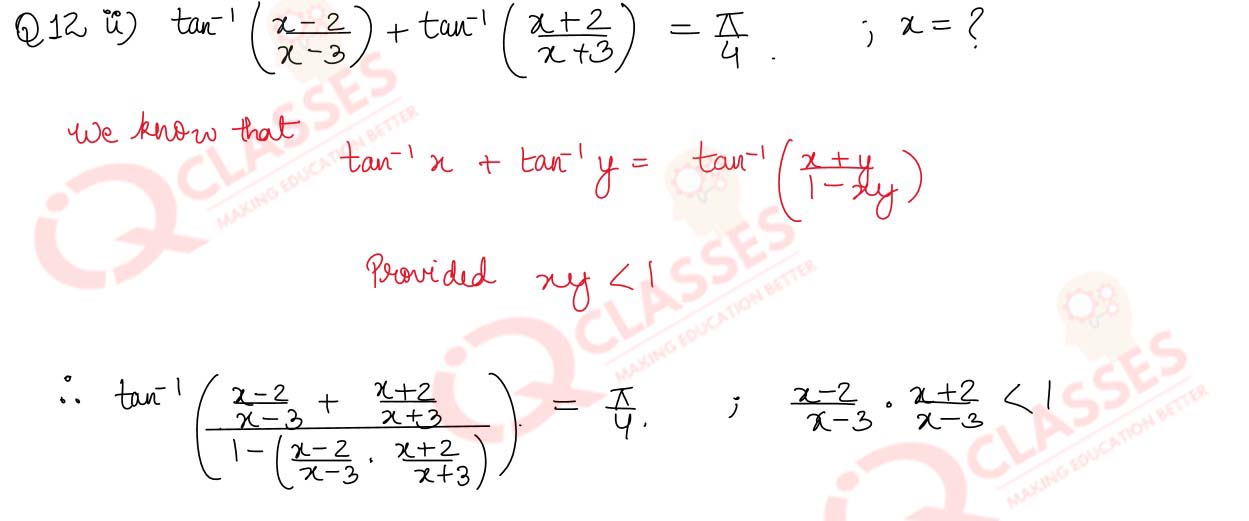 Q12 ii) tan⁻¹((x-2)/(x-3)) + tan⁻¹((x+2)/(x+3)) = π/4. ; x = ?
we know that
tan⁻¹ x + tan⁻¹ y = tan⁻¹((x+y)/(1-xy))
Provided xy < 1
∴ tan⁻¹(((x-2)/(x-3) + (x+2)/(x+3))/(1-((x-2)/(x-3) · (x+2)/(x+3)))) = π/4. ; (x-2)/(x-3) · (x+2)/(x-3) < 1
IQ CLASSES
MAKING EDUCATION BETTER
IQ CLASSES
MAKING EDUCATION BETTER
IQ CLASSES
MAKING EDUCATION BETTER